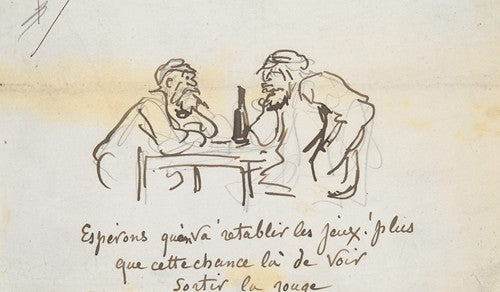 Espérons qu'on va retablir les jeux! plus
que cette chance là de voir
Sortir la rouge